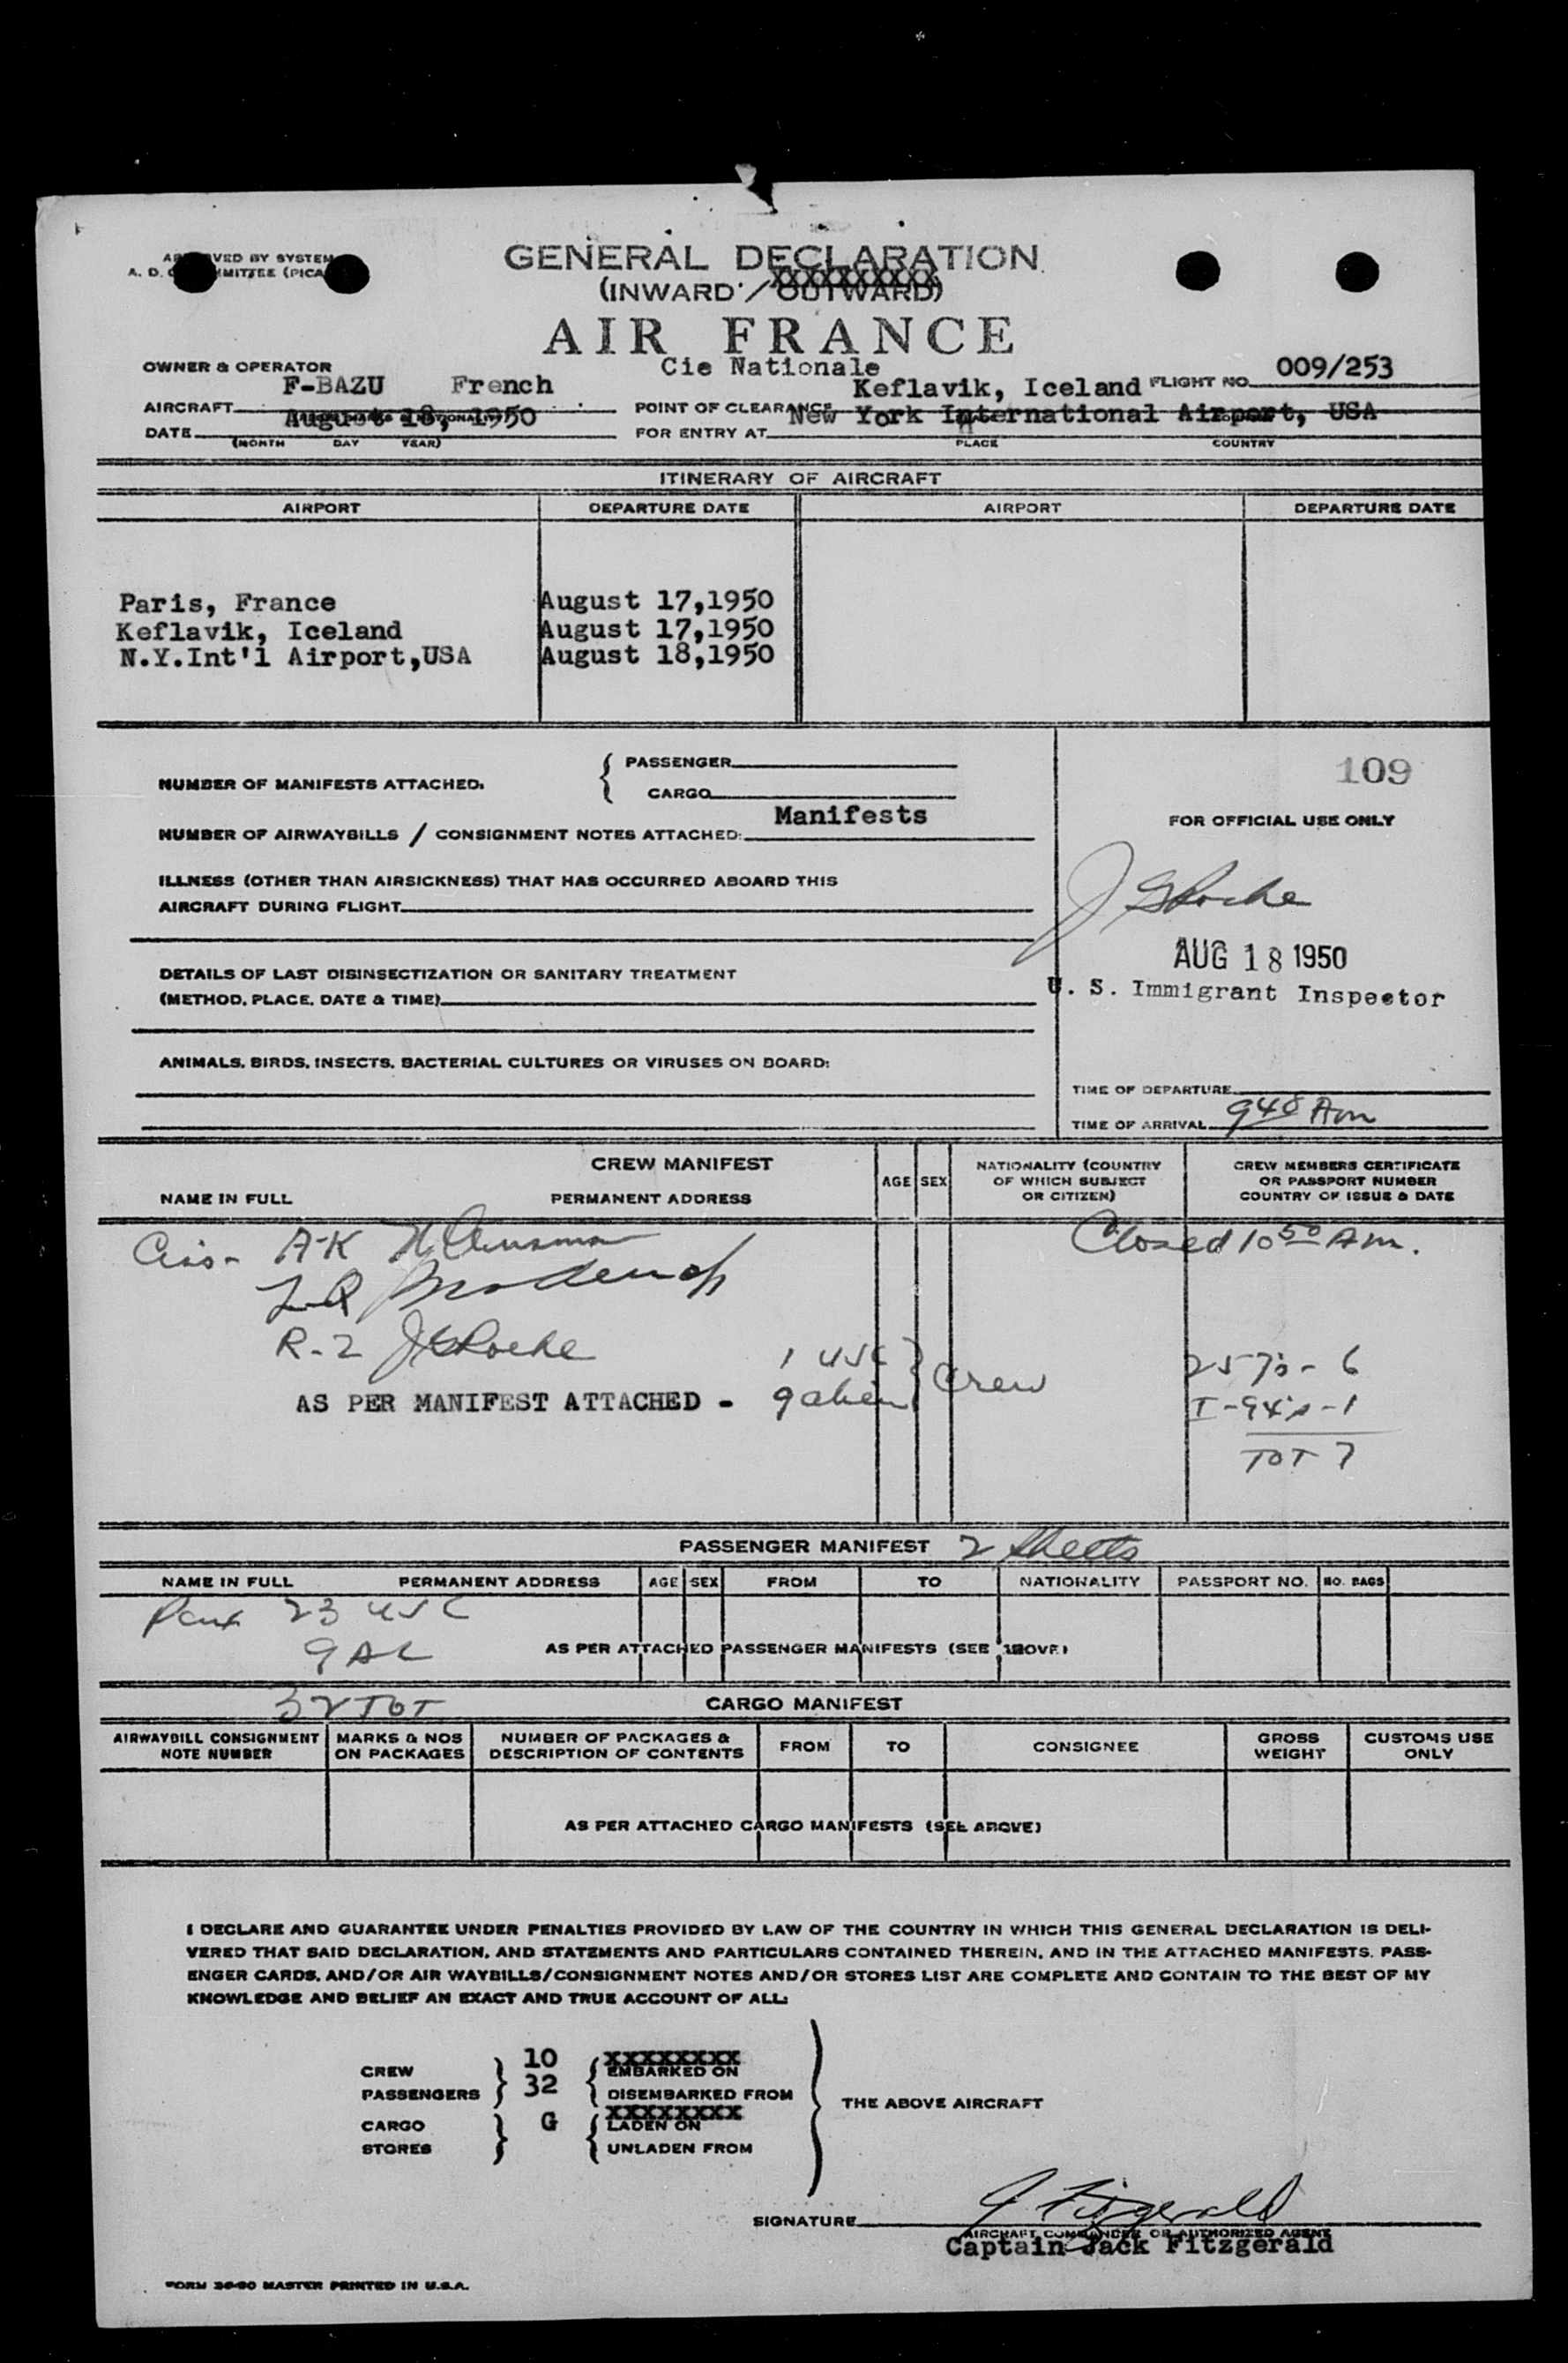 GENERAL DECLARATION
(INWARD / OUTWARD)
AIR FRANCE
Cie Nationale
OWNER & OPERATOR
F-BAZU French
Keflavik, Iceland
FLIGHT NO. 009/253
AIRCRAFT
POINT OF CLEARANCE
August 18, 1950
New York International Airport, USA
DATE
(MONTH DAY YEAR)
FOR ENTRY AT
PLACE COUNTRY
ITINERARY OF AIRCRAFT
AIRPORT DEPARTURE DATE AIRPORT DEPARTURE DATE
Paris, France August 17,1950
Keflavik, Iceland August 17,1950
N.Y.Int'l Airport,USA August 18,1950
NUMBER OF MANIFESTS ATTACHED.
{ PASSENGER
CARGO
109
NUMBER OF AIRWAYBILLS / CONSIGNMENT NOTES ATTACHED: Manifests
FOR OFFICIAL USE ONLY
ILLNESS (OTHER THAN AIRSICKNESS) THAT HAS OCCURRED ABOARD THIS
AIRCRAFT DURING FLIGHT
J G Roche
AUG 18 1950
U. S. Immigrant Inspector
DETAILS OF LAST DISINSECTIZATION OR SANITARY TREATMENT
(METHOD, PLACE, DATE & TIME)
ANIMALS, BIRDS, INSECTS, BACTERIAL CULTURES OR VIRUSES ON BOARD:
TIME OF DEPARTURE
TIME OF ARRIVAL 948 Am
CREW MANIFEST
NAME IN FULL PERMANENT ADDRESS
AGE SEX
NATIONALITY (COUNTRY
OF WHICH SUBJECT
OR CITIZEN)
CREW MEMBERS CERTIFICATE
OR PASSPORT NUMBER
COUNTRY OF ISSUE & DATE
A-K
Closed 10 50 Am.
R-2 J G Roche
1 USC } Crew
AS PER MANIFEST ATTACHED - 9 alien
257's - 6
I-94's - 1
TOT 7
PASSENGER MANIFEST 2 Sheets
NAME IN FULL PERMANENT ADDRESS AGE SEX FROM TO NATIONALITY PASSPORT NO. NO. BAGS
23 USC
9 AL
AS PER ATTACHED PASSENGER MANIFESTS (SEE ABOVE)
32 TOT
CARGO MANIFEST
AIRWAYBILL CONSIGNMENT
NOTE NUMBER
MARKS & NOS
ON PACKAGES
NUMBER OF PACKAGES &
DESCRIPTION OF CONTENTS
FROM TO CONSIGNEE
GROSS
WEIGHT
CUSTOMS USE
ONLY
AS PER ATTACHED CARGO MANIFESTS (SEE ABOVE)
I DECLARE AND GUARANTEE UNDER PENALTIES PROVIDED BY LAW OF THE COUNTRY IN WHICH THIS GENERAL DECLARATION IS DELI-
VERED THAT SAID DECLARATION, AND STATEMENTS AND PARTICULARS CONTAINED THEREIN, AND IN THE ATTACHED MANIFESTS, PASS-
ENGER CARDS, AND/OR AIR WAYBILLS/CONSIGNMENT NOTES AND/OR STORES LIST ARE COMPLETE AND CONTAIN TO THE BEST OF MY
KNOWLEDGE AND BELIEF AN EXACT AND TRUE ACCOUNT OF ALL:
CREW } 10 { XXXXXXXX EMBARKED ON
PASSENGERS 32 DISEMBARKED FROM
THE ABOVE AIRCRAFT
CARGO } G { XXXXXXXX LADEN ON
STORES UNLADEN FROM
SIGNATURE J Fitzgerald
AIRCRAFT COMMANDER OR AUTHORIZED AGENT
Captain Jack Fitzgerald
FORM 36-50 MASTER PRINTED IN U.S.A.